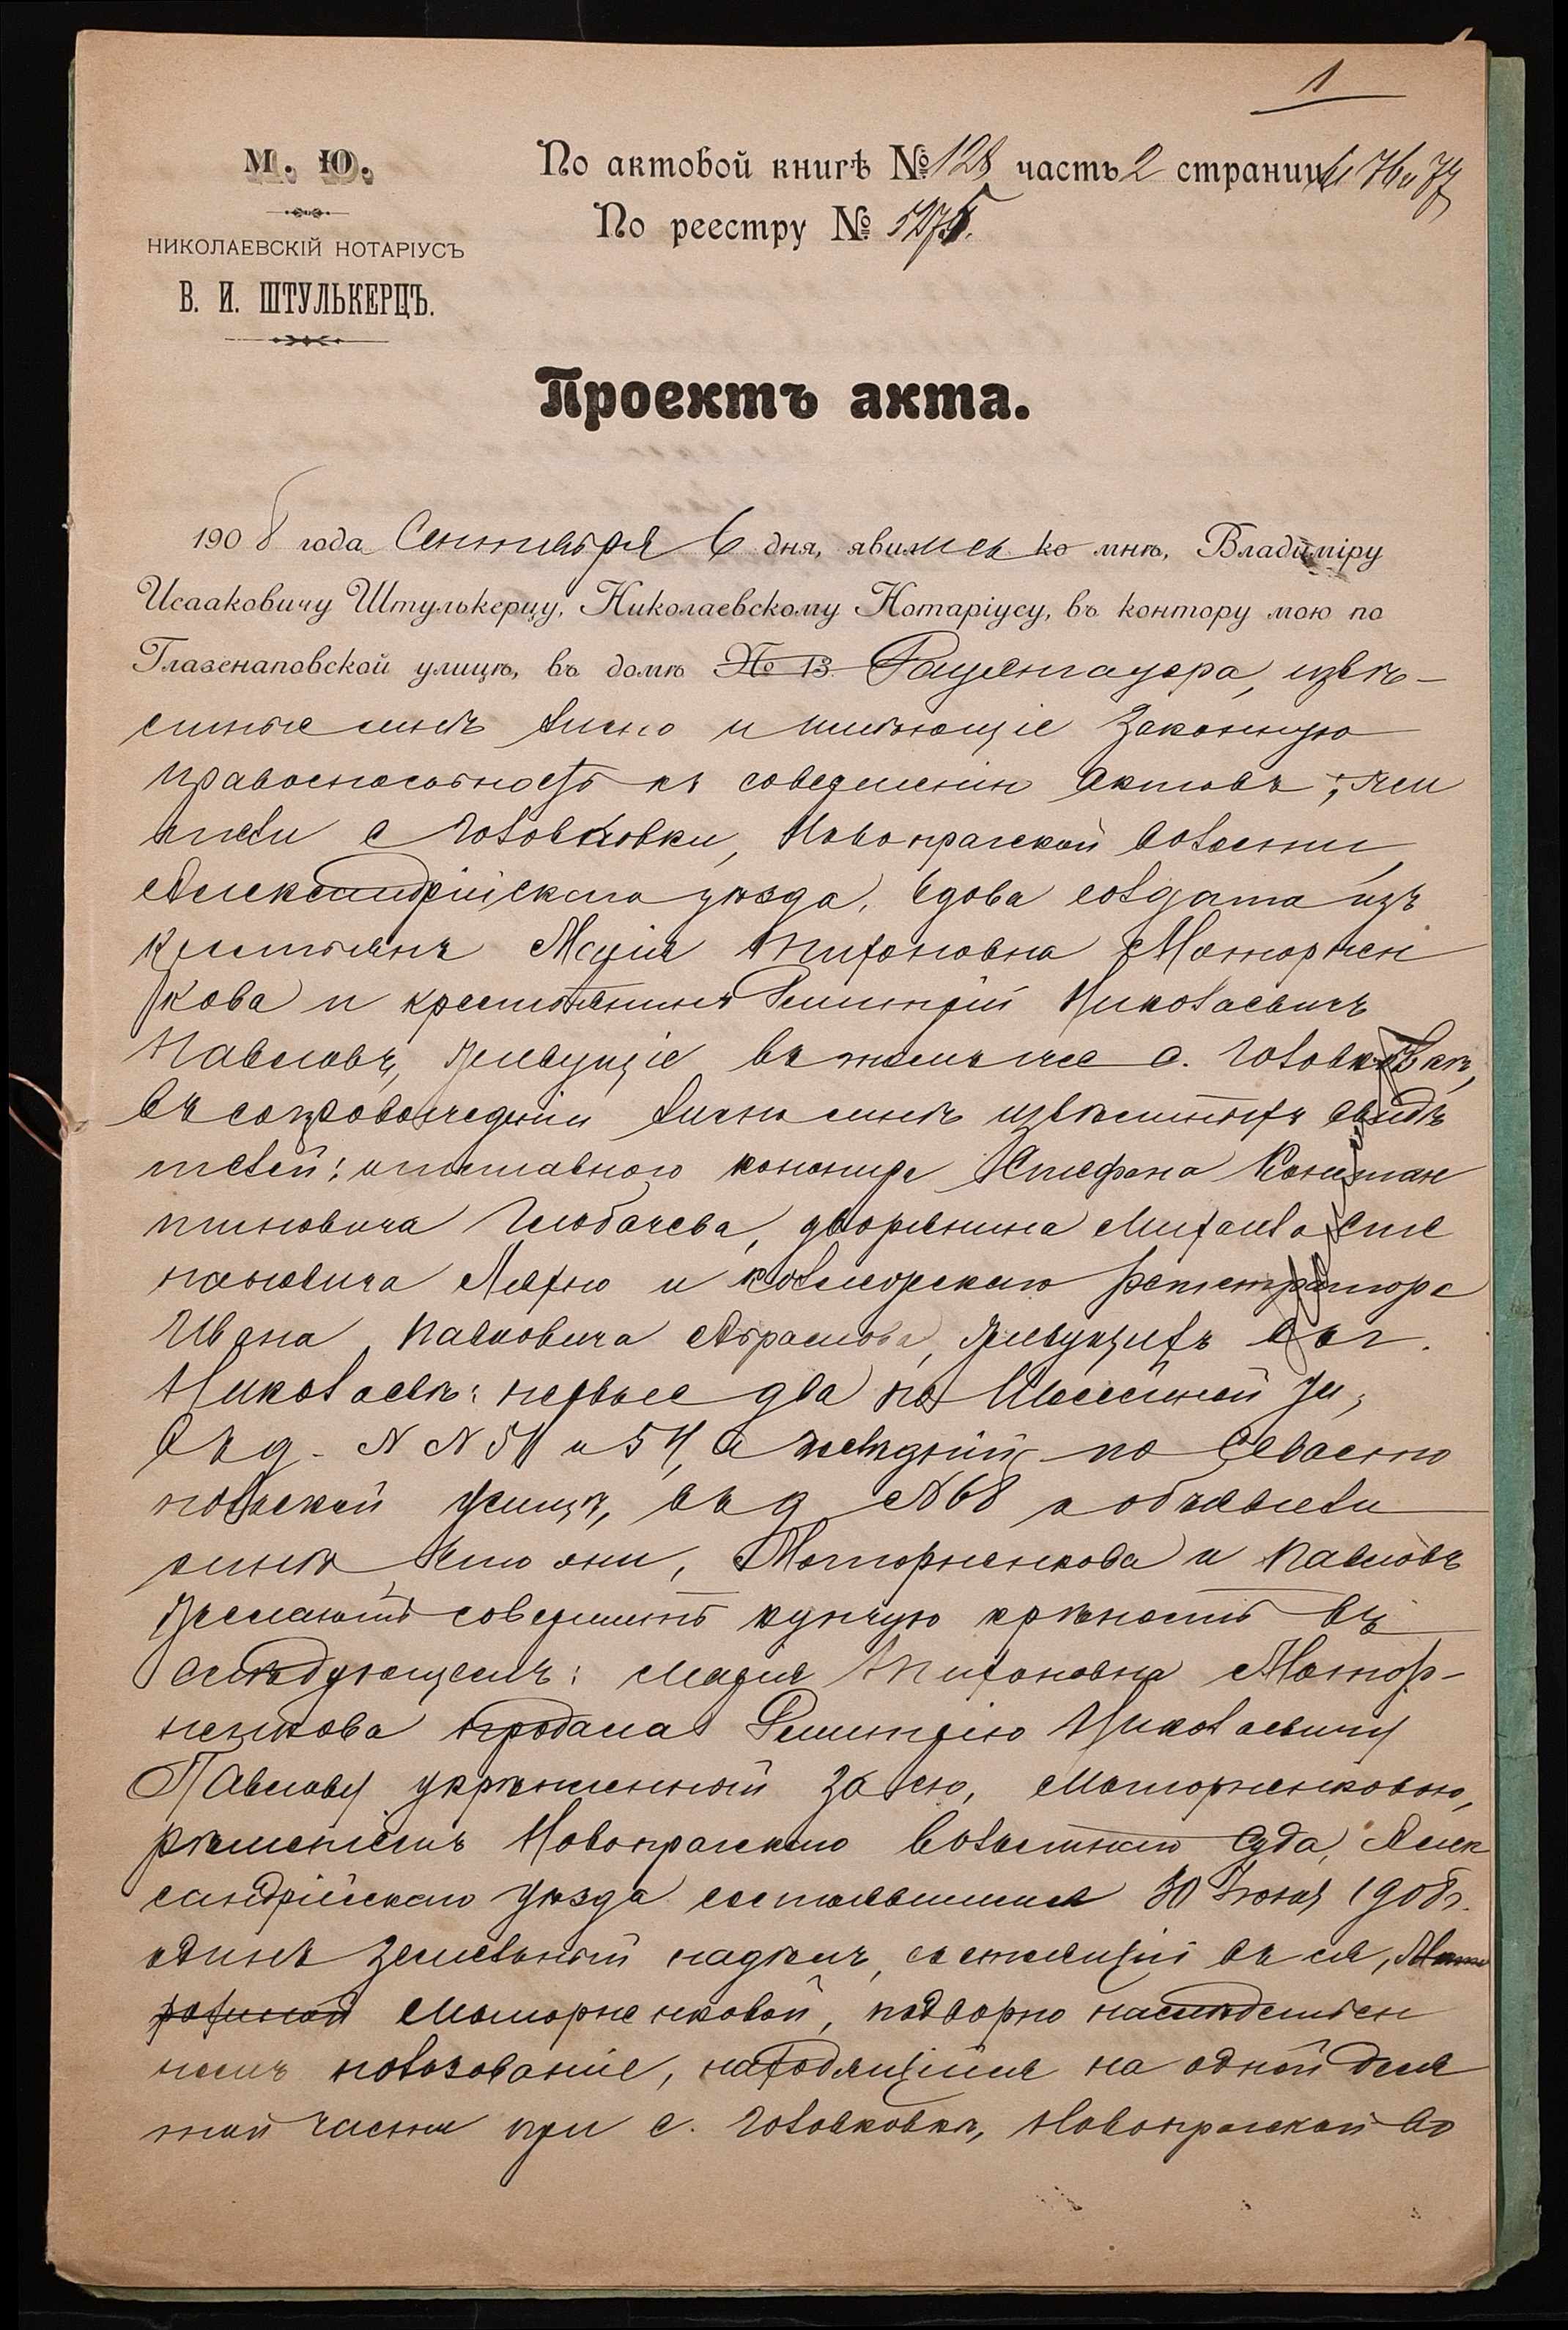 1
М. Ю.
НИКОЛАЕВСКІЙ НОТАРІУСЪ
В. И. ШТУЛЬКЕРЦЪ.
По актовой книгѣ № 128 часть 2 страницы 76 и 77
По реестру №
Проектъ акта.
1908 года Сентября 6 дня, явились ко мнѣ, Владиміру
Исааковичу Штулькерцу, Николаевскому Нотаріусу, въ контору мою по
Глазенаповской улицѣ, въ домѣ № 13 извѣ-
стные мнѣ лично и имѣющіе законную
правоспособность къ совершенію актовъ: жи
тели с Головковки, Новопражской волости,
Александрійскаго уѣзда, вдова солдата изъ
крестьянъ Марія Тихоновна Моторнен
кова и крестьянинъ Николаевичъ
Павловъ, живущіе въ томъ же с. Головковкѣ,
въ сопровожденіи лично мнѣ извѣстныхъ свидѣ
телей: отставного Стефана Констан
тиновича дворянина Михаила Сте
пановича и коллежскаго регистратора
Ивана Павловича Абрамова, живущихъ въ г.
Николаевѣ: первые два по ул;
въ д. №№ 51 и 54, а послѣдній по Севасто
польской улицѣ, въ д №68 и объявили
мнѣ что они, Моторненкова и Павловъ
желаютъ совершить купчую крѣпость въ
слѣдующемъ: Марія Тихоновна Мотор-
ненкова продала Николаевичу
Павлову укрѣпленный за нею, Моторненковою,
рѣшеніемъ Новопражскаго волостнаго Суда, Алек
сандрійскаго уѣзда состоявшимся 30 1908г.
одинъ земельный надѣлъ, состоящій въ ея,
Моторненковой, подворно наслѣдствен
номъ пользованіе, находящійся на одной
части при с. Головковкѣ, Новопражской во